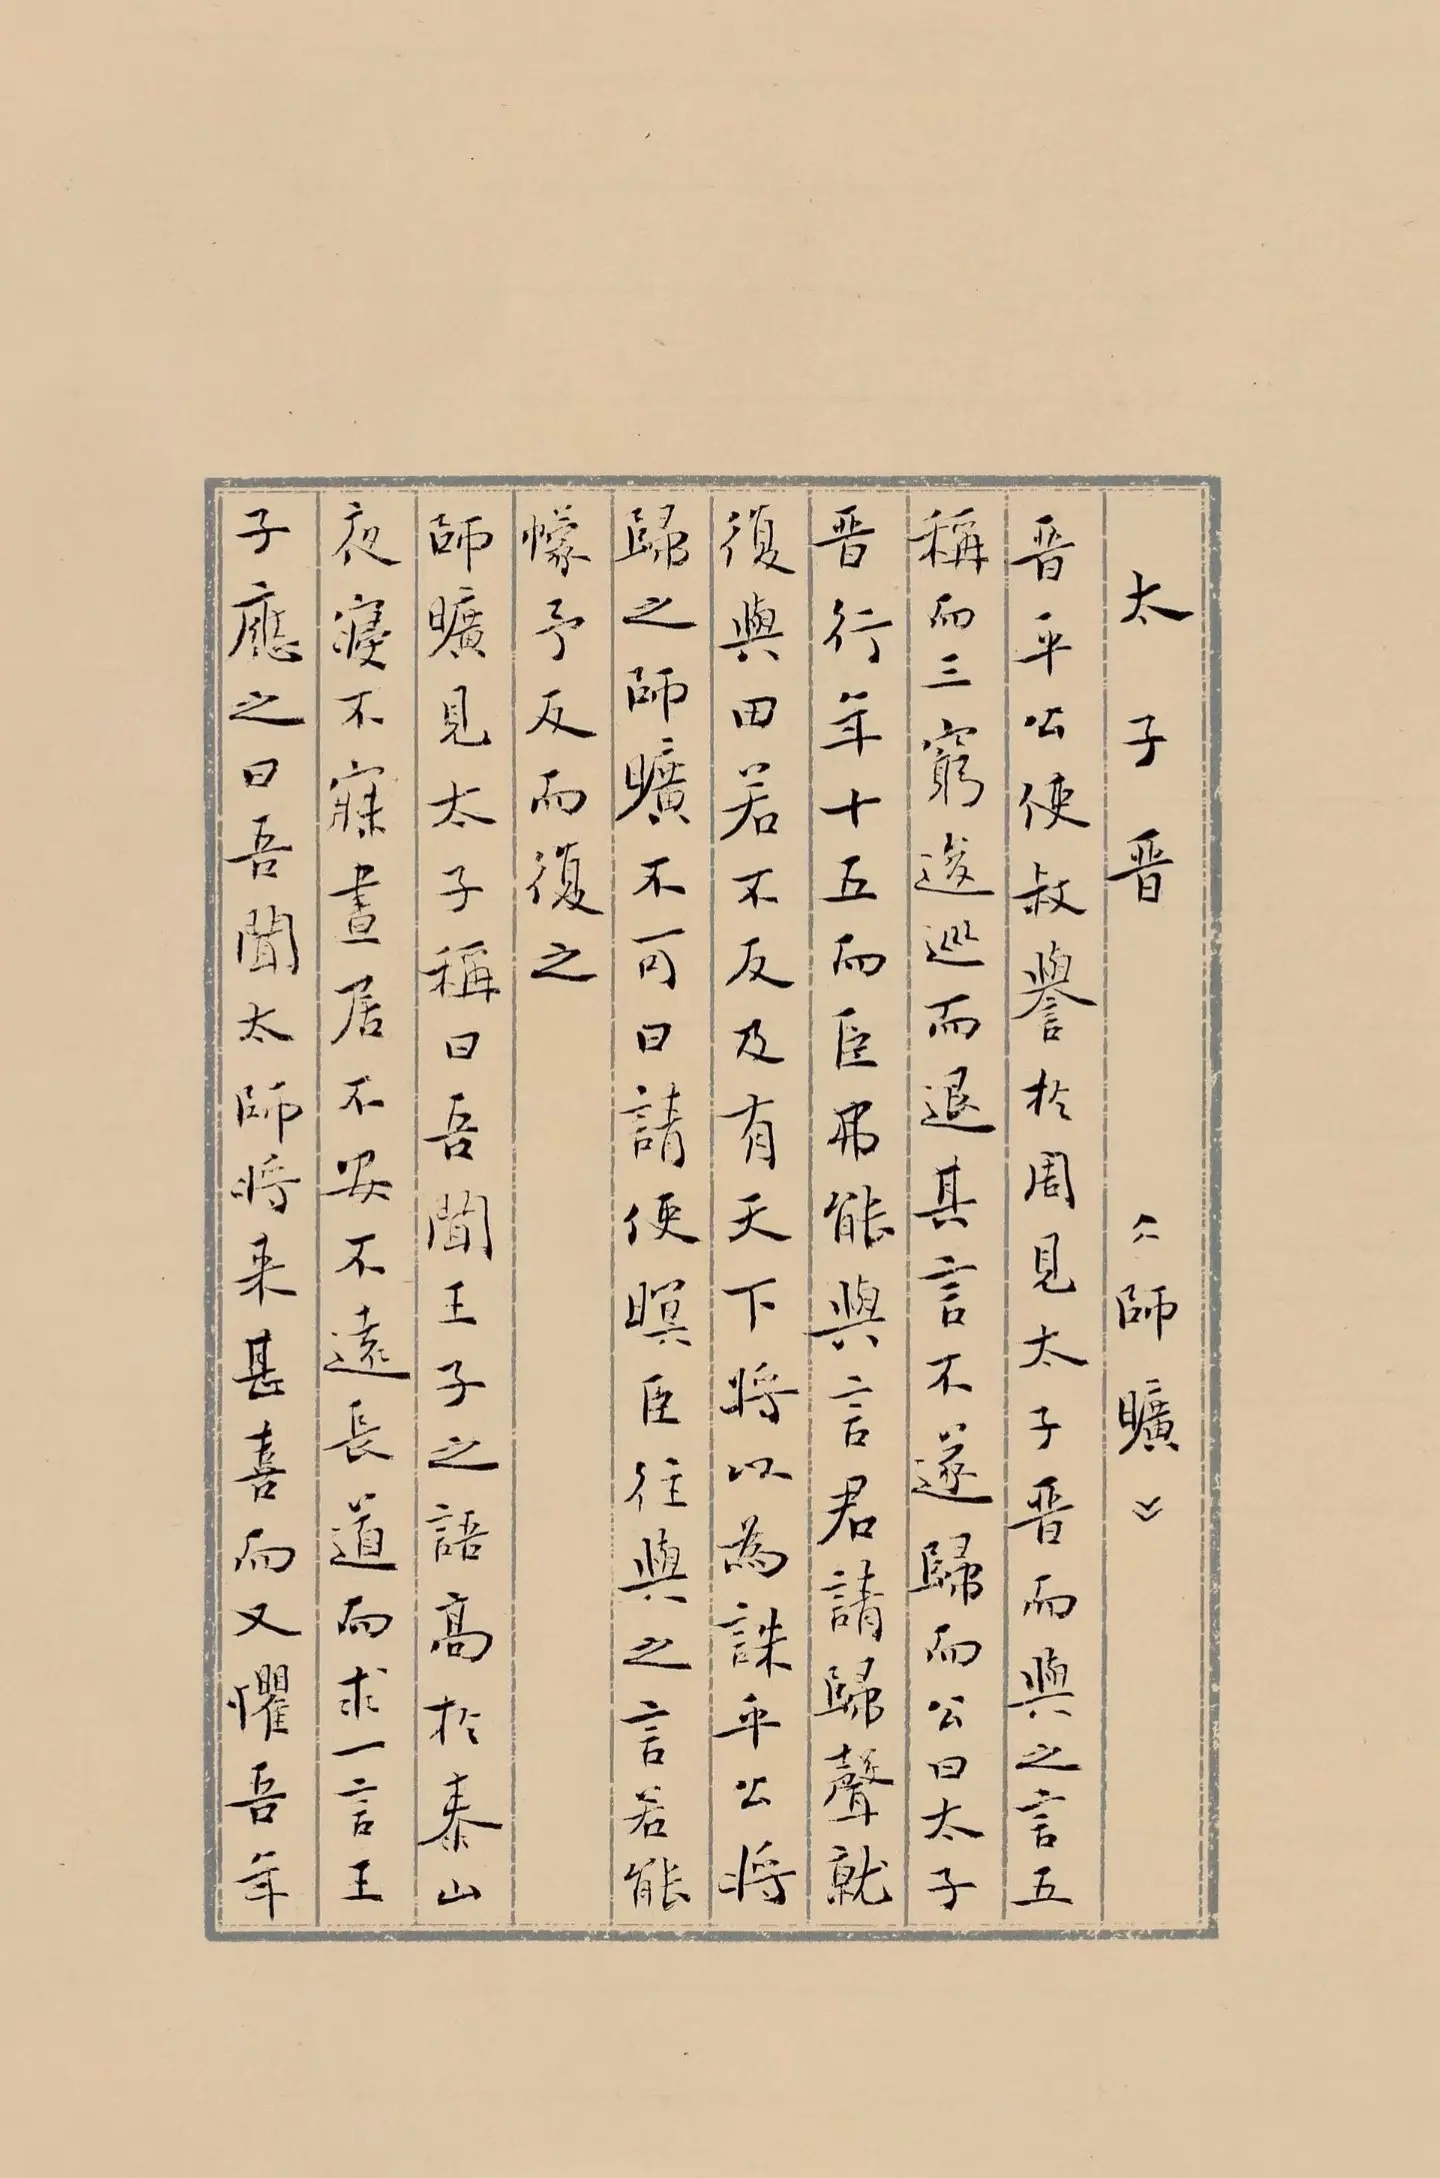 太子晉 《師曠》
晉平公使叔譽於周見太子晉而與之言五
稱而三窮逡巡而退其言不遂歸而公曰太子
晉行年十五而臣弗能與言君請歸聲就
復與田若不反及有天下將以為誅平公將
歸之師曠不可曰請使瞑臣往與之言若能
幪予反而復之
師曠見太子稱曰吾聞王子之語高於泰山
夜寢不寐晝居不安不遠長道而求一言王
子應之曰吾聞太師將来甚喜而又懼吾年